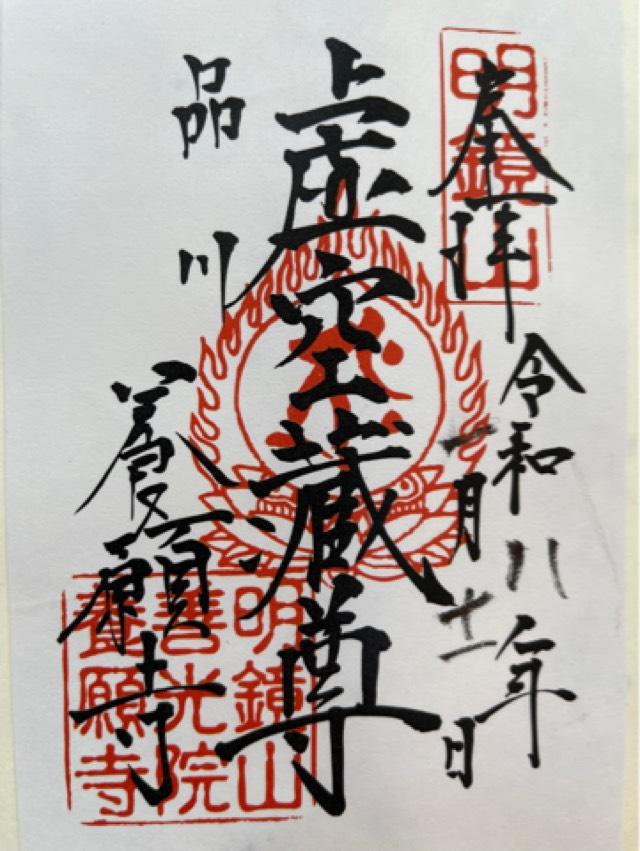 奉拝
令和八年
一月十一日
虚空蔵尊
品川
養願寺
明鏡山
明鏡山
善光院
養願寺